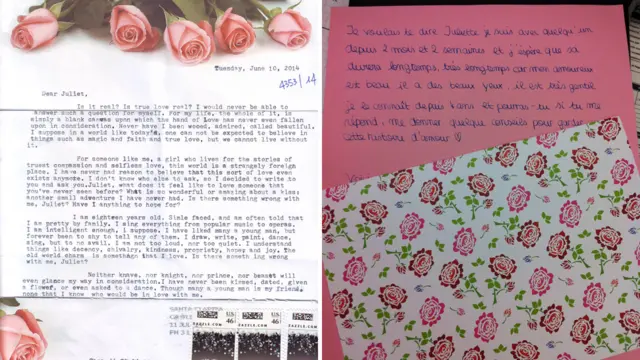 Tuesday, June 10, 2014
4353/14
Dear Juliet,
Is it real? Is true love real? I would never be able to
answer such a question for myself. For my life, the whole of it, is
simply a blank canvas upon which the hand of Love has never even fallen
upon in consideration. Never have I been wooed, admired, called beautiful.
I suppose in a world like today's, one can not be expected to believe in
things such as magic and faith and true love, but we cannot live without
it.
For someone like me, a girl who lives for the stories of
truest compassion and selfless love, this world is a strangely foreign
place. I have never had reason to believe that this sort of love even
exists anymore. I don't know who else to ask, so I decided to write to
you and ask you, Juliet, what does it feel like to love someone that
you've never seen before? What is so wonderful or amazing about a kiss;
another small adventure I have never had. Is there something wrong with
me, Juliet? Have I anything to hope for?
I am eighteen years old. Single faced, and am often told that
I am pretty by family. I sing everything from popular music to operas.
I am intelligent enough, I suppose. I have liked many a young man, but
forever been to shy to tell any of them. I draw, write, paint, dance,
sing, but to no avail. I am not too loud, nor too quiet. I understand
things like decency, chivalry, kindness, propriety, hope, and joy. The
old world charm is something that I love. Is there something wrong
with me, Juliet?
Neither knave, nor knight, nor prince, nor beast will
even glance my way in consideration. I have never been kissed, dated, given
a flower, or even asked to a dance. Though many a young man is my friend,
none that I know who would be in love with me.
SANTA
US 46
US 46
US 46
ZAZZLE.COM
ZAZZLE.COM
ZAZZLE.COM
Je voulais te dire Juliette je suis avec quelqu'un
depuis 2 mois et 2 semaines et j'éspère que sa
durera longtemps, très longtemps car mon amoureux
est beau il a des beaux yeux, il est très gentil
je le connaît depuis 4 ans et pourras-tu si tu me
répond me donner quelque conseils pour garder
cette histoire d'amour